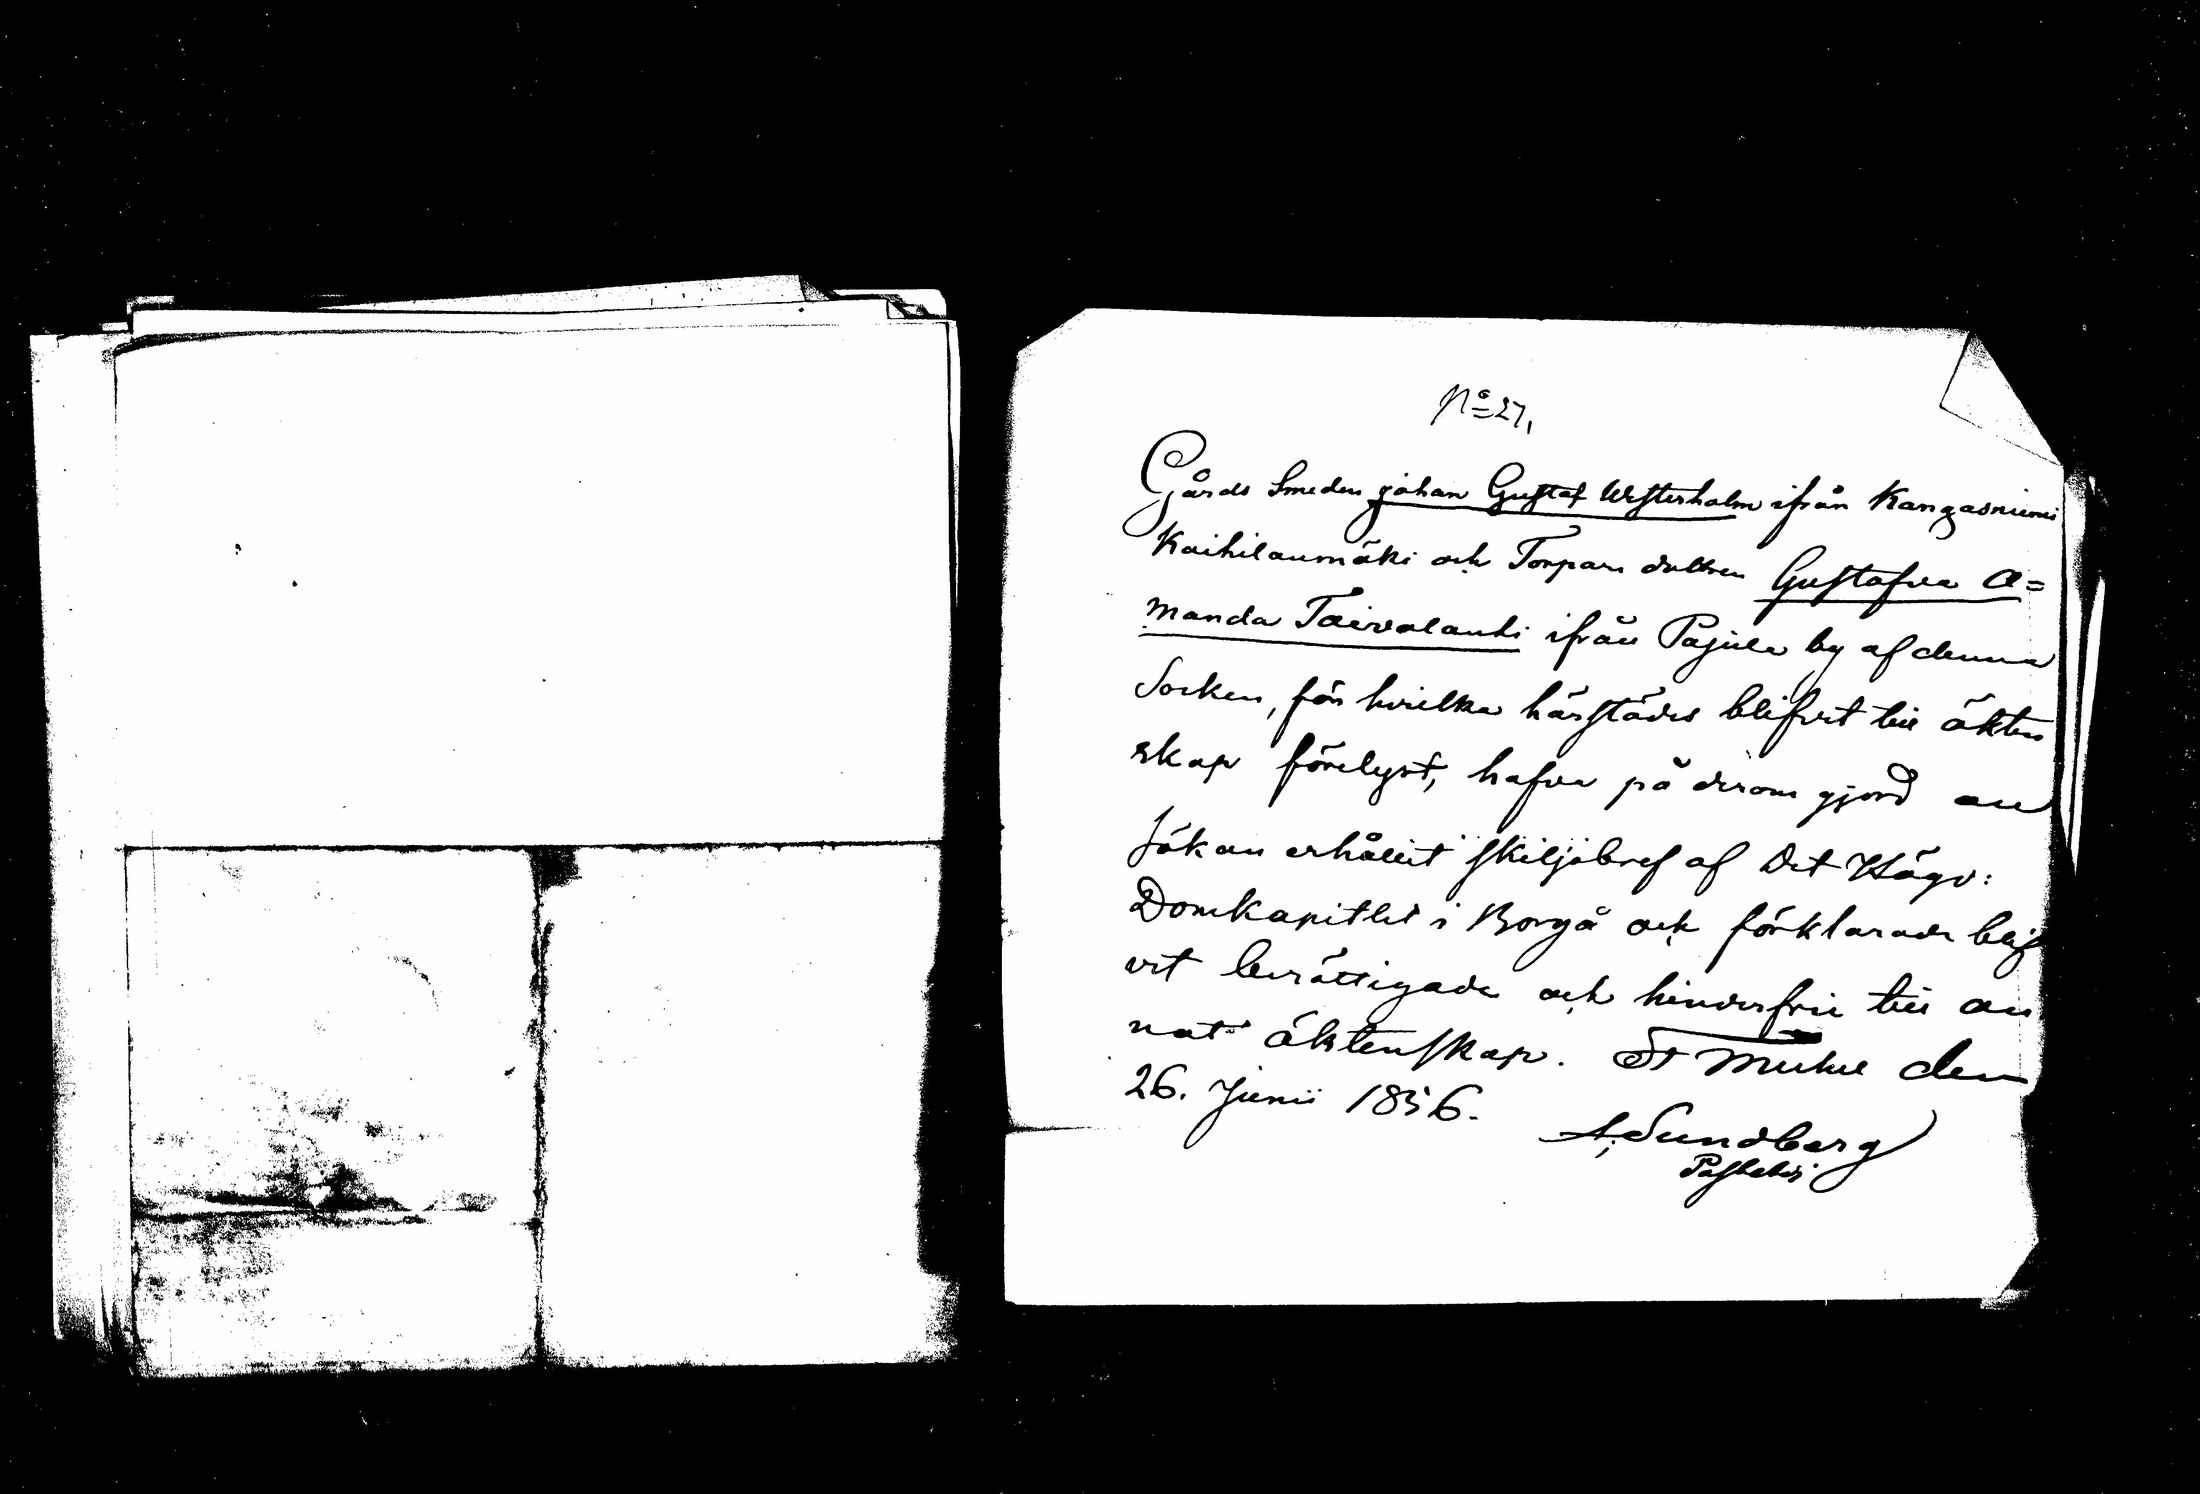 No 27,
Gårds Smeden Johan Gustaf Westerholm ifrån Kangasniemi
Kaihilanmäki och Torpare dottren Gustafva A=
manda Taivalanti ifrån Pajula by af denna
Socken, för hvilka härstädes blifvit till äkten
skap förelyst, hafva på derom gjord an
sökan erhållit skiljobref af Det Högv:
Domkapitlet i Borgå och förklarade blif
vit berättigade och hinderfrie till an
nat äktenskap. St Michel den
26. Junii 1856.
A. Sundberg